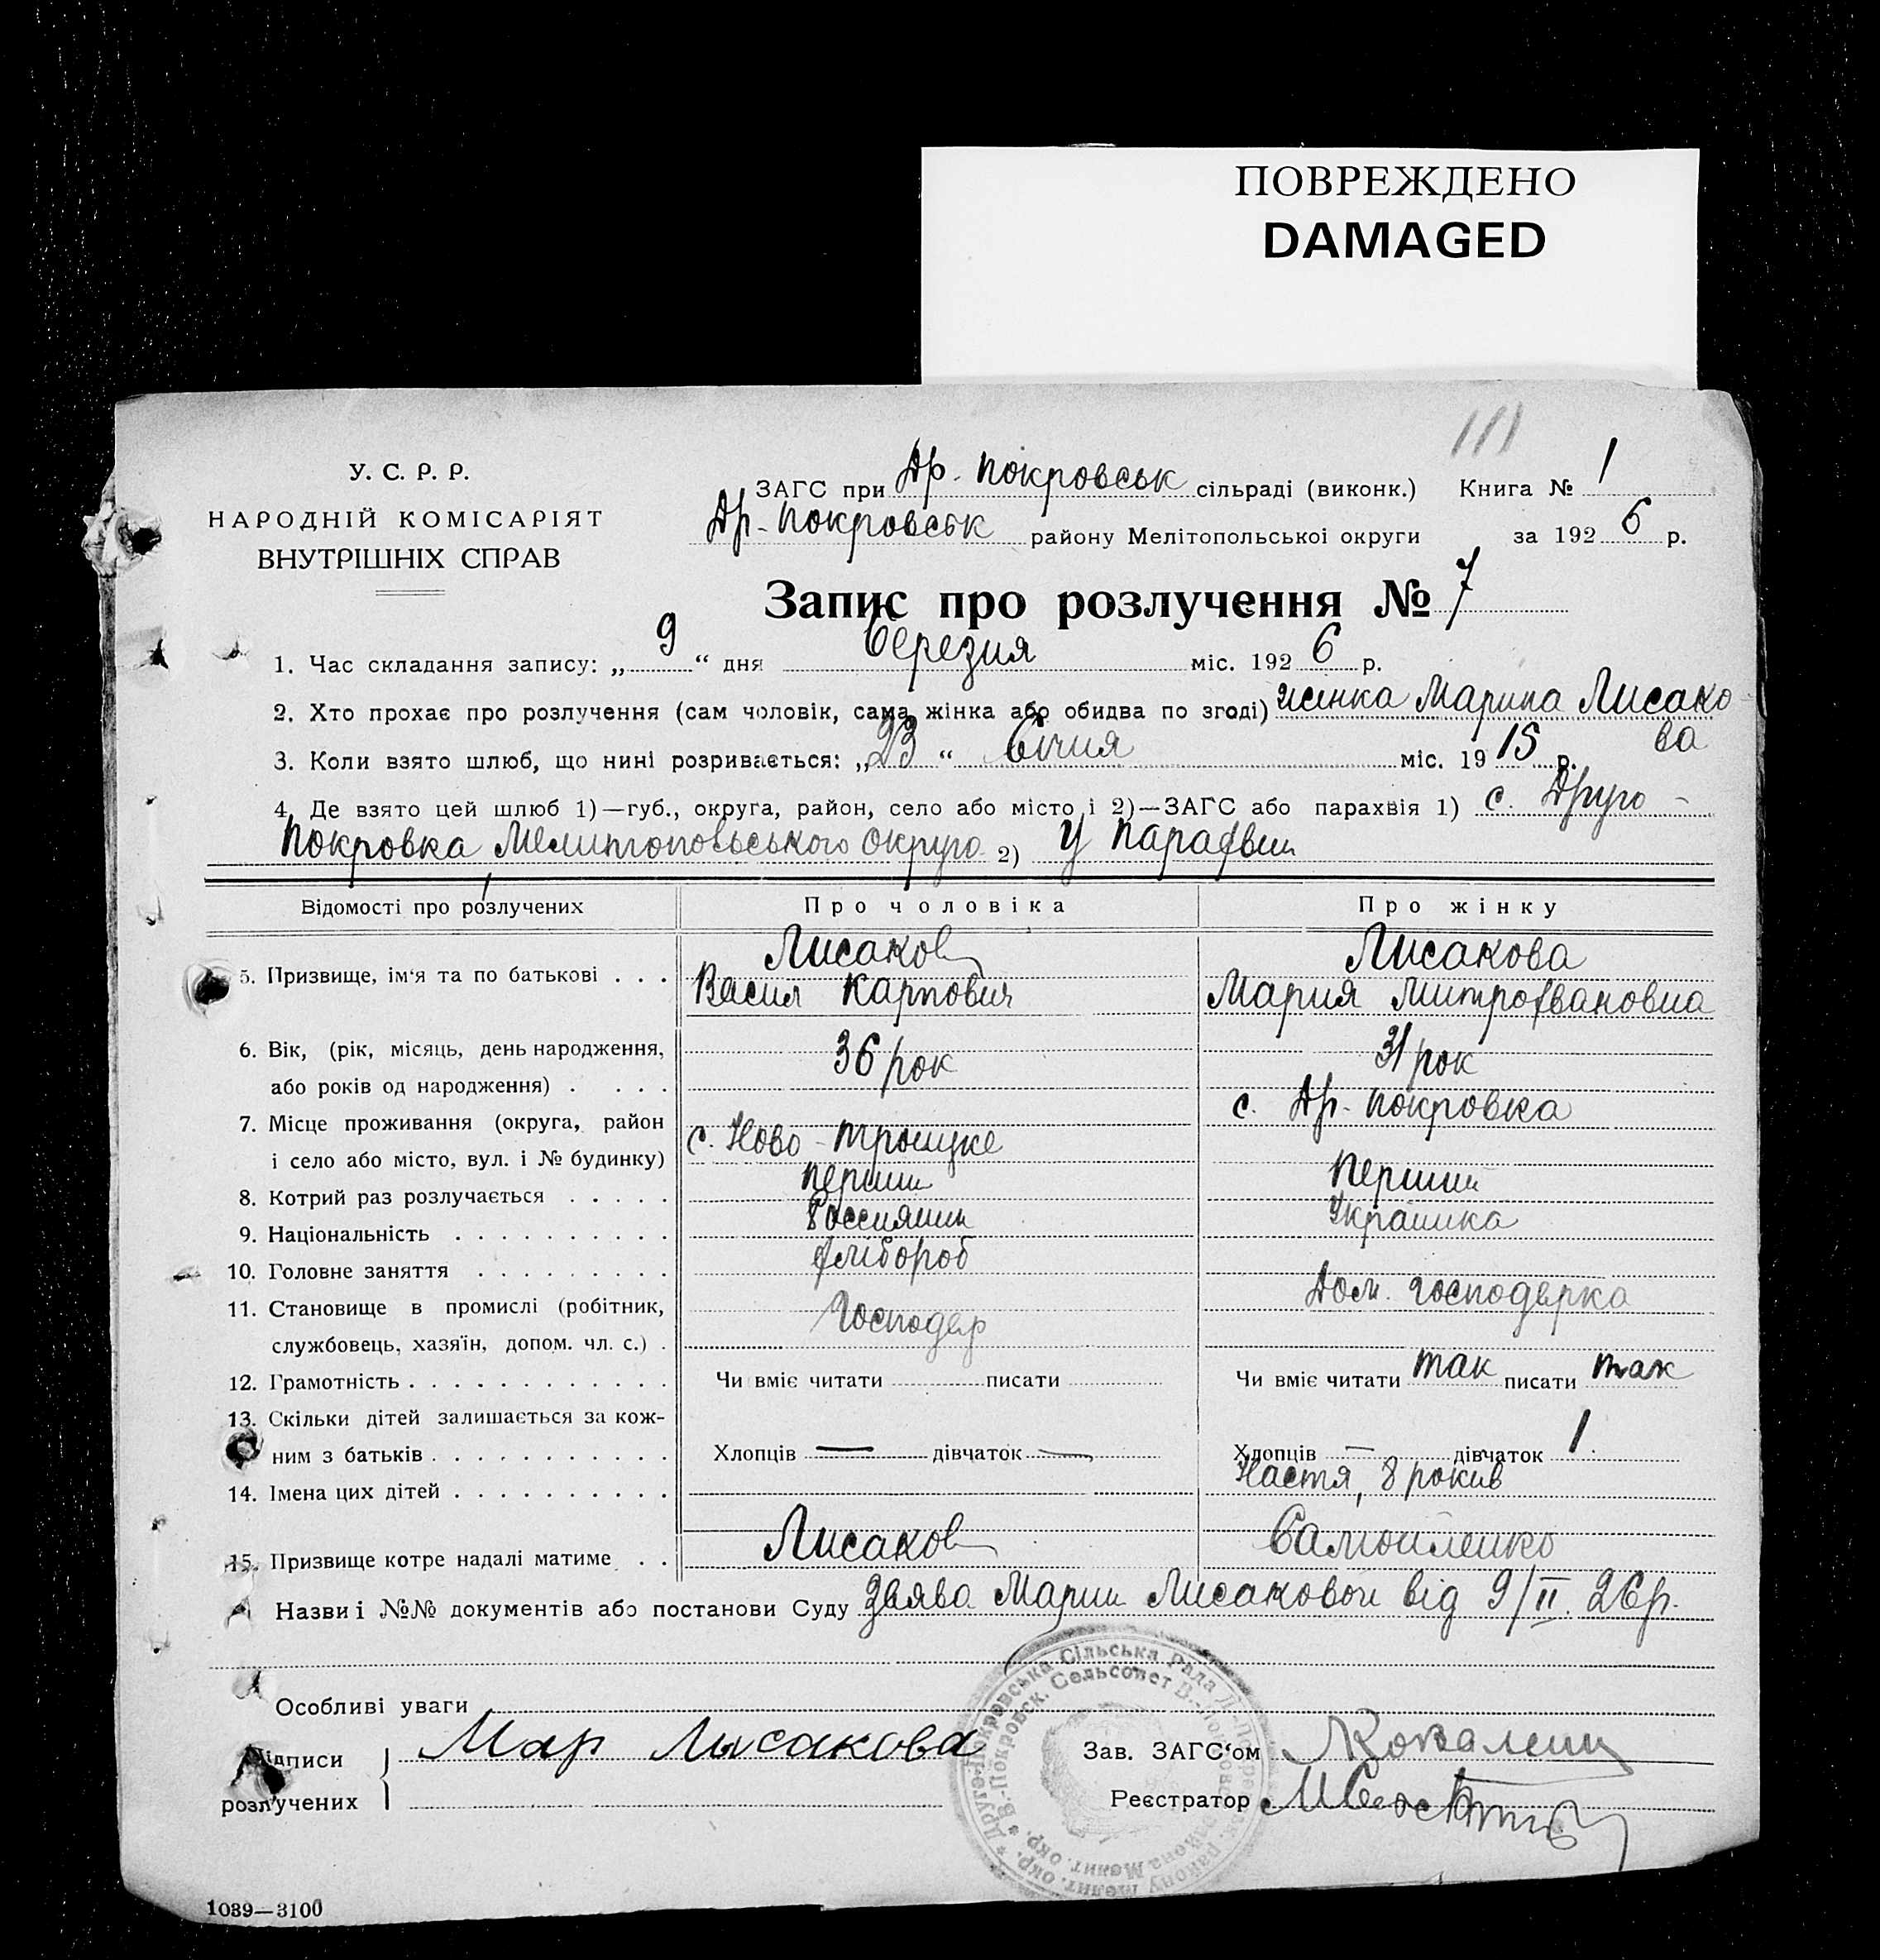 ПОВРЕЖДЕНО
DAMAGED
111
У. С. Р. Р.
НАРОДНІЙ КОМІСАРІЯТ
ВНУТРІШНІХ СПРАВ
ЗАГС при Др-Покровськ сільраді (виконк.) Книга № 1
Др-Покровськ району Мелітопольської округи за 1926 р.
Запис про розлучення № 7
1. Час складання запису: „9“ дня березня міс. 1926 р.
2. Хто прохає про розлучення (сам чоловік, сама жінка або обидва по згоді) жинка Марина Лисако-
ва
3. Коли взято шлюб, що нині розривається: „23“ Січня міс. 1915 р.
4. Де взято цей шлюб 1)—губ., округа, район, село або місто і 2)—ЗАГС або парахвія 1) с. Друго-
Покровка Мелитопольського Округо 2) У Парафвии
Відомості про розлучених Про чоловіка Про жінку
5. Призвище, ім‘я та по батькові . . . Лисаков Лисакова
Васил Карпович Мария Митрофвановна
6. Вік, (рік, місяць, день народження, 36 рок 31 рок
або років од народження) . . . .
7. Місце проживання (округа, район с. Ново-Троицке с. Др-Покровка
і село або місто, вул. і № будинку)
8. Котрий раз розлучається . . . . . Перший Перший
9. Національність . . . . . . . . . . Россиянин Українка
10. Головне заняття . . . . . . . . . хлібороб
11. Становище в промислі (робітник, Господар Дом. господарка
службовець, хазяїн, допом. чл. с.) .
12. Грамотність . . . . . . . . . . . . Чи вміє читати писати Чи вміє читати так писати так
13. Скільки дітей залишається за кож-
ним з батьків . . . . . . . . . . . Хлопців — дівчаток — Хлопців — дівчаток 1.
14. Імена цих дітей . . . . . . . . . . Настя, 8 рокив
15. Призвище котре надалі матиме . . Лисаков Самойленко
Назви і №№ документів або постанови Суду Заява Марии Лисаковой від 9/II. 26р.
Особливі уваги
Підписи Мар Лысакова Зав. ЗАГС‘ом
розлучених Реєстратор
Друго-Покровська Сільська Рада
В.-Покровск. Сельсовет
1089—3100